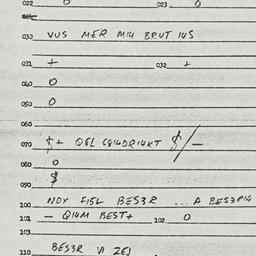 022 0 023. 0
030 VUS MER M14 BRUT 14S
031 + 032 +
040 0
050 0
060
070 $+ OEL C814DR14KT $/-
080 0
090 $
100 NOY F15L BES3R ... A BES3R14
101 - Q14M BEST+ 102 0
103
110 BES3R VI ZEJ